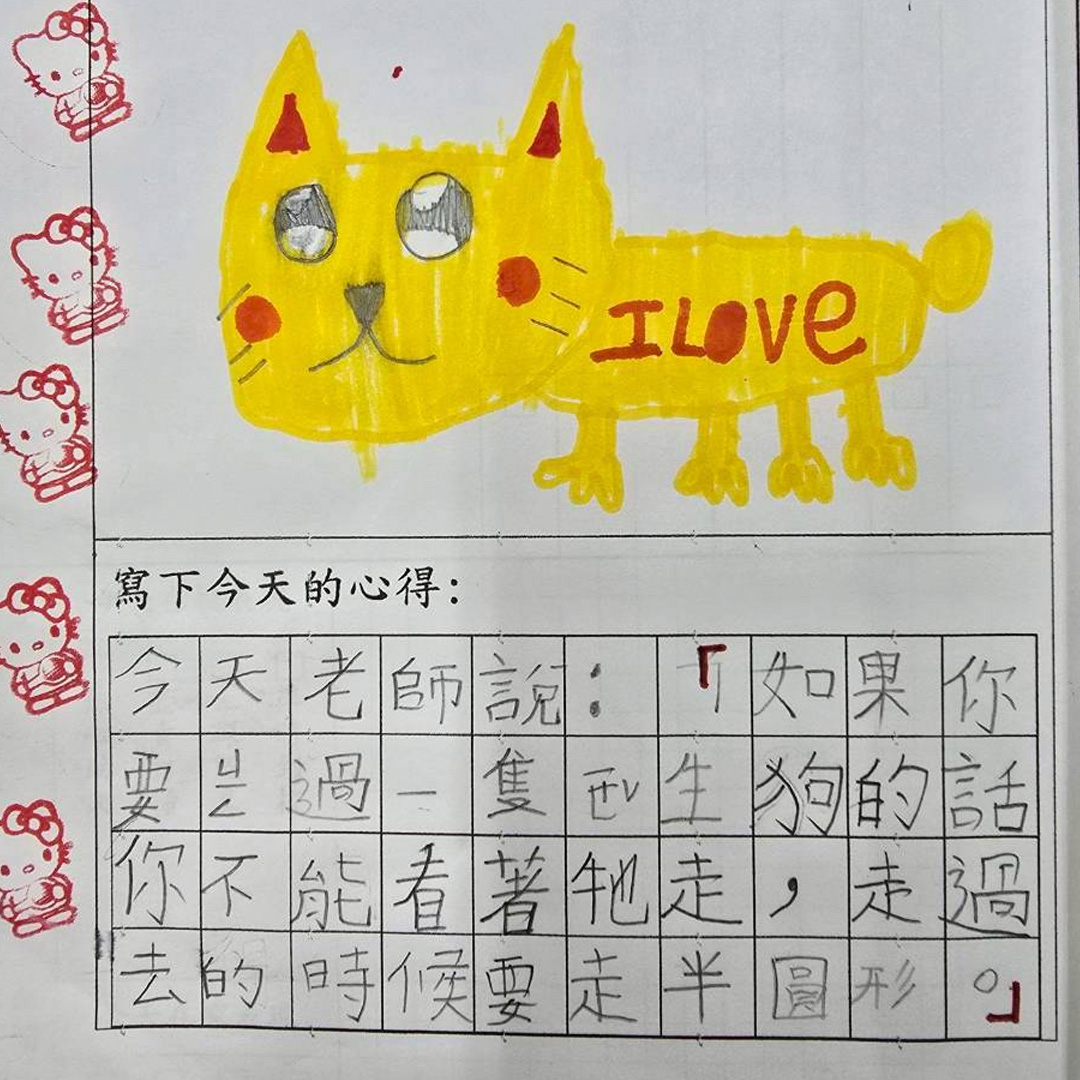 I LOVE
寫下今天的心得：
今天老師說：「如果你
要ㄐㄧㄥ過一隻ㄧㄝˇ生狗的話
你不能看著牠走，走過
去的時候要走半圓形。」